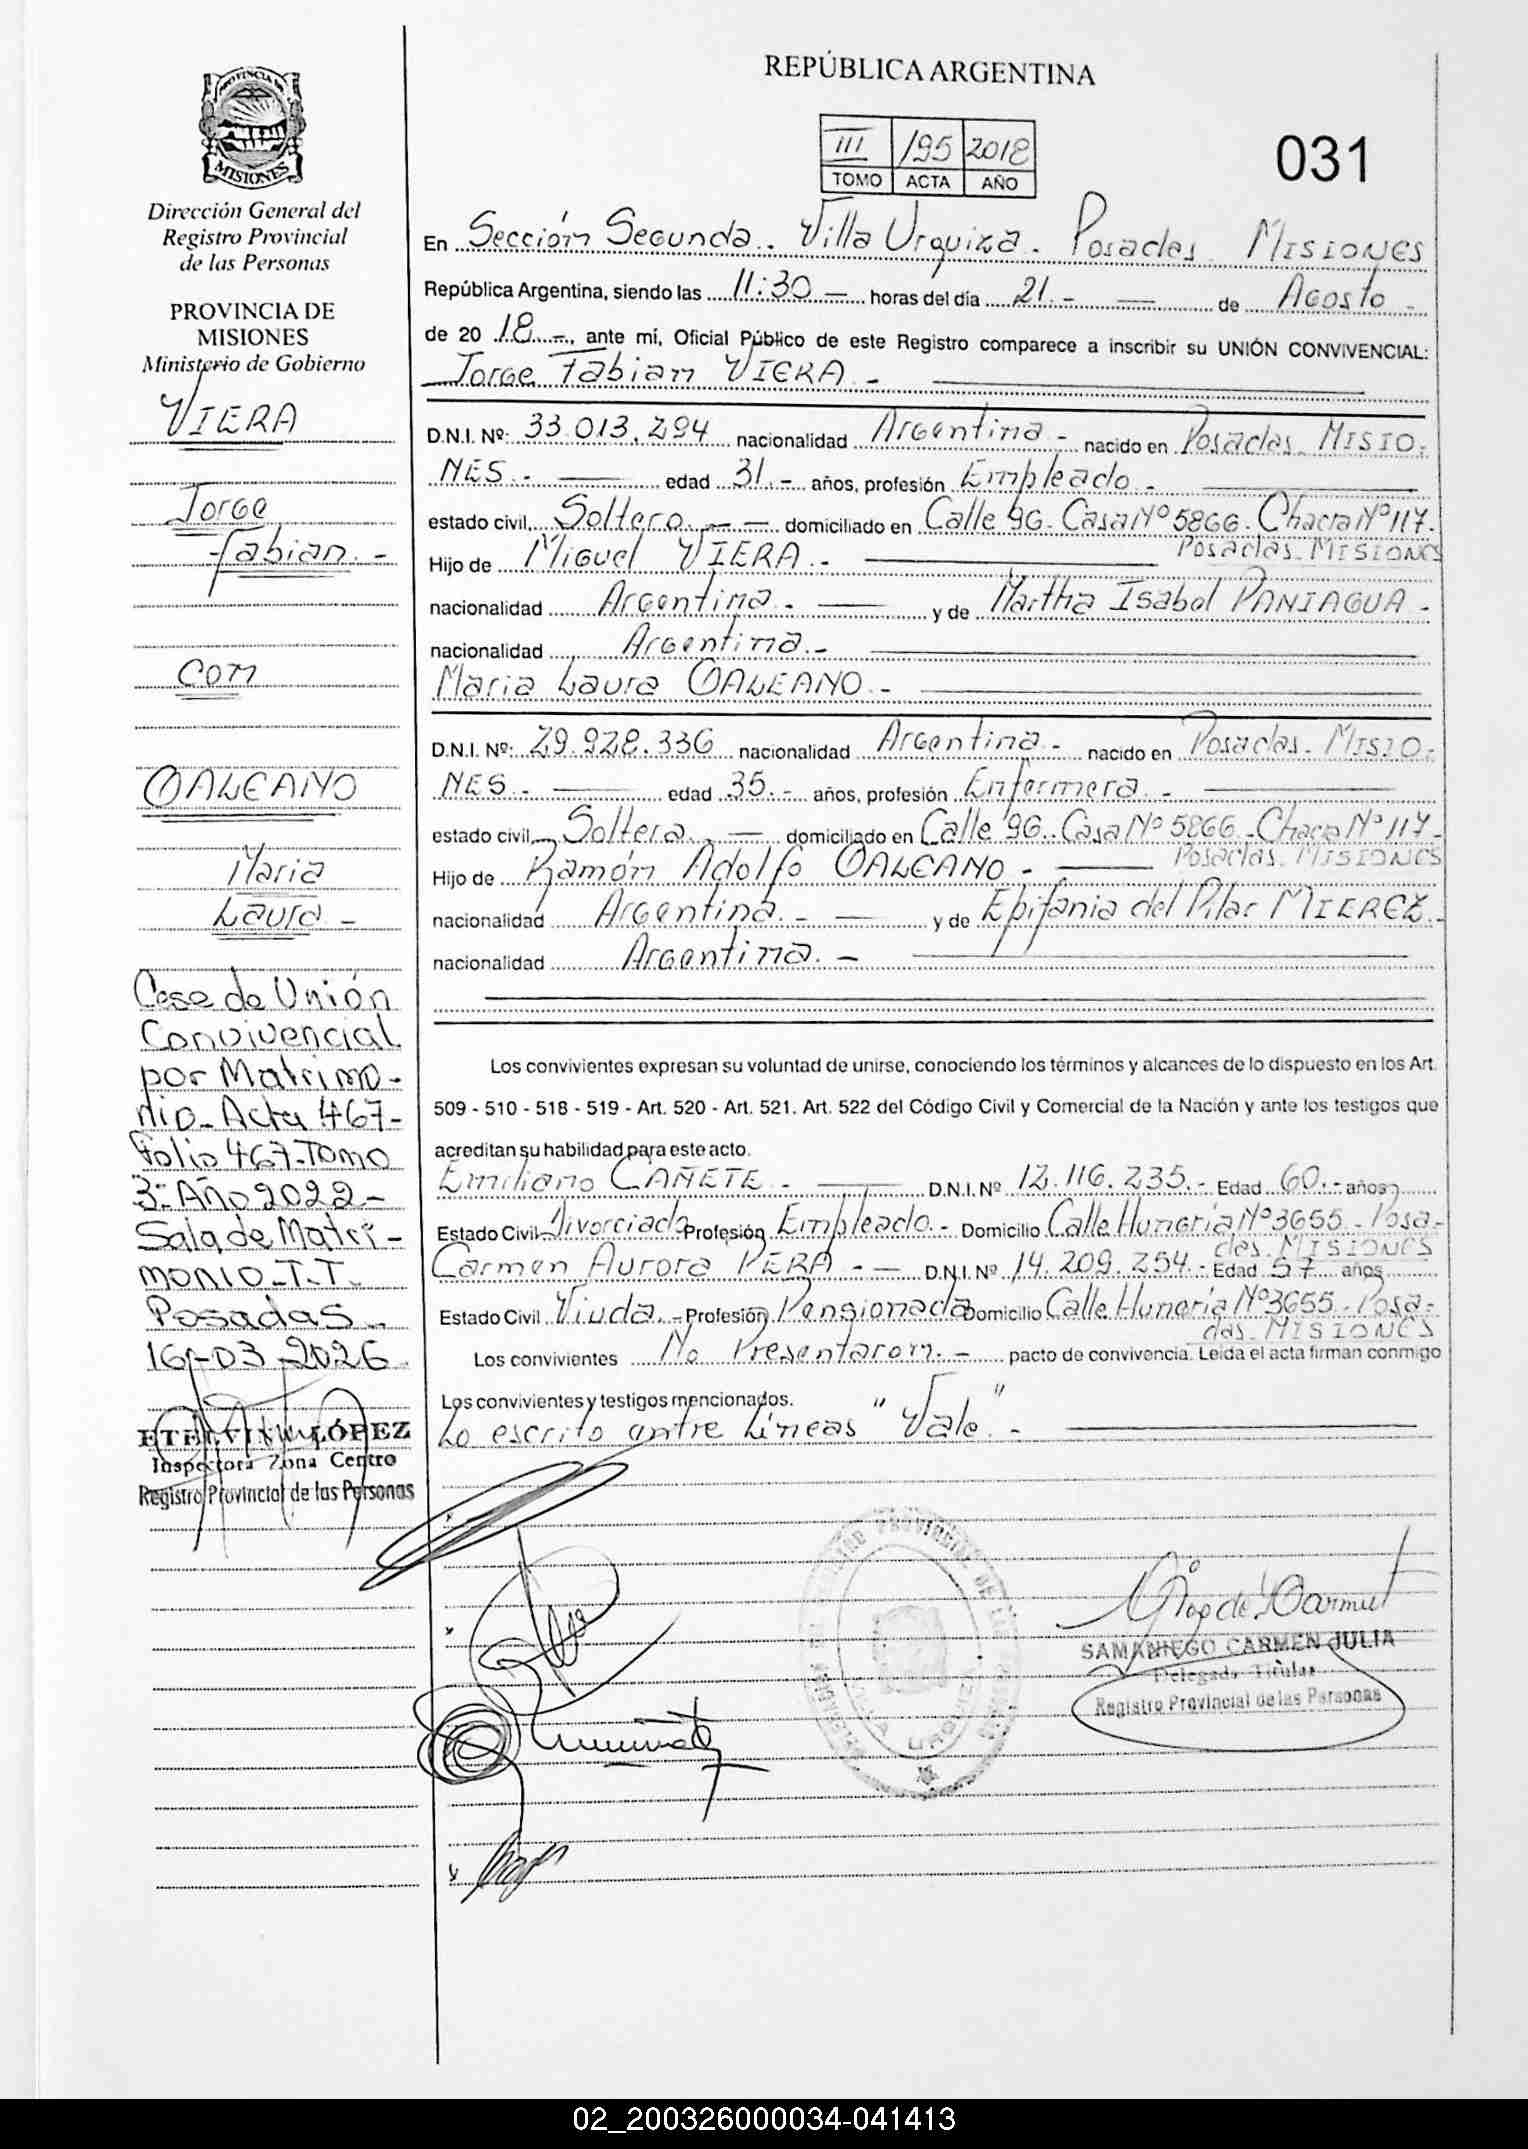 PROVINCIA DE
MISIONES
Dirección General del
Registro Provincial
de las Personas
PROVINCIA DE
MISIONES
Ministerio de Gobierno
VIERA
Jorge
Fabian.-
Con
GALEANO
Maria
Laura-
Cese de Unión
Convivencial
por Matrimo-
nio-Acta 467-
Folio 467-Tomo
3º-Año 2022-
Sala de Matri-
monio-T.T.
Posadas-
16-03-2026
ETELVINA LÓPEZ
Inspectora Zona Centro
Registro Provincial de las Personas
REPÚBLICA ARGENTINA
III 195 2018
TOMO ACTA AÑO
031
En Sección Segunda. Villa Urquiza. Posadas MISIONES
República Argentina, siendo las 11:30 — horas del día 21.- — de Agosto-
de 20 18-, ante mí, Oficial Público de este Registro comparece a inscribir su UNIÓN CONVIVENCIAL:
Jorge Fabian VIERA.-
D.N.I. Nº: 33.013.294 nacionalidad Argentina- nacido en Posadas. MISIO-
NES.- — edad 31.- años, profesión Empleado.-
estado civil Soltero.- — domiciliado en Calle 96. Casa Nº 5866. Chacra Nº 117.
Posadas. MISIONES
Hijo de Miguel VIERA.-
nacionalidad Argentina.- — y de Martha Isabel PANIAGUA-
nacionalidad Argentina.-
Maria Laura GALEANO.-
D.N.I. Nº: 29.928.336 nacionalidad Argentina.- nacido en Posadas. MISIO-
NES.- — edad 35.- años, profesión Enfermera.-
estado civil Soltera. — domiciliado en Calle 96. Casa Nº 5866. Chacra Nº 117-
Posadas. MISIONES
Hijo de Ramón Adolfo GALEANO.-
nacionalidad Argentina.- — y de Epifania del Pilar MIEREZ.-
nacionalidad Argentina.-
Los convivientes expresan su voluntad de unirse, conociendo los términos y alcances de lo dispuesto en los Art.
509 - 510 - 518 - 519 - Art. 520 - Art. 521. Art. 522 del Código Civil y Comercial de la Nación y ante los testigos que
acreditan su habilidad para este acto.
Emiliano CAÑETE.- — D.N.I. Nº 12.116.235.- Edad 60.- años
Estado Civil Divorciado Profesión Empleado.- Domicilio Calle Hungría Nº 3655. Posa-
das. MISIONES
Carmen Aurora PERA.- — D.N.I. Nº 14.209.254.- Edad 57 años
Estado Civil Viuda.- Profesión Pensionada Domicilio Calle Hungría Nº 3655. Posa-
das. MISIONES
Los convivientes No Presentaron.- pacto de convivencia. Leída el acta firman conmigo
Los convivientes y testigos mencionados.
Lo escrito entre Líneas "Vale".-
SAMANIEGO CARMEN JULIA
Delegada Titular
Registro Provincial de las Personas
02_200326000034-041413